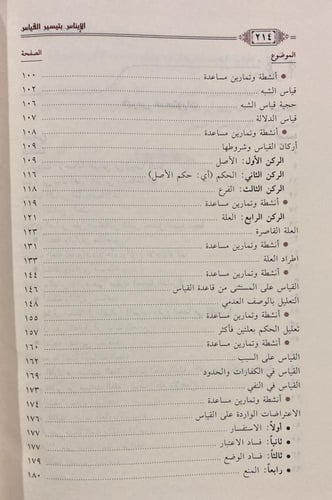 الإيناس بتيسير القياس
٢١٤
الموضوع الصفحة
● أنشطة وتمارين مساعدة ١٠٠
قياس الشبه ١٠٢
حجية قياس الشبه ١٠٦
قياس الدلالة ١٠٧
● أنشطة وتمارين مساعدة ١٠٨
أركان القياس وشروطها ١٠٩
الركن الأول: الأصل ١٠٩
الركن الثاني: الحكم (أي: حكم الأصل) ١١٦
الركن الثالث: الفرع ١١٨
● أنشطة وتمارين مساعدة ١١٩
الركن الرابع: العلة ١٢١
العلة القاصرة ١٢٣
● أنشطة وتمارين مساعدة ١٣١
اطراد العلة ١٣٣
● أنشطة وتمارين مساعدة ١٤٤
القياس على المستثنى من قاعدة القياس ١٤٦
التعليل بالوصف العدمي ١٤٨
● أنشطة وتمارين مساعدة ١٥٥
تعليل الحكم بعلتين فأكثر ١٥٧
● أنشطة وتمارين مساعدة ١٦٠
القياس على السبب ١٦٢
القياس في الكفارات والحدود ١٦٩
القياس في النفي ١٧٣
● أنشطة وتمارين مساعدة ١٧٤
الاعتراضات الواردة على القياس ١٧٦
● أولاً: الاستفسار ١٧٧
● ثانياً: فساد الاعتبار ١٧٧
● ثالثاً: فساد الوضع ١٧٩
● رابعاً: المنع ١٨٠